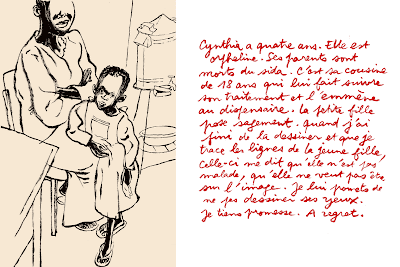 Cynthia a quatre ans. Elle est
orpheline. Ses parents sont
morts du sida. C'est sa cousine
de 18 ans qui lui fait suivre
son traitement et l'emmène
au dispensaire. La petite fille
pose sagement. Quand j'ai
fini de la dessiner et que je
trace les lignes de la jeune fille,
celle-ci me dit qu'elle n'est pas
malade, qu'elle ne veut pas être
sur l'image. Je lui promets de
ne pas dessiner ses yeux.
Je tiens promesse. A regret.